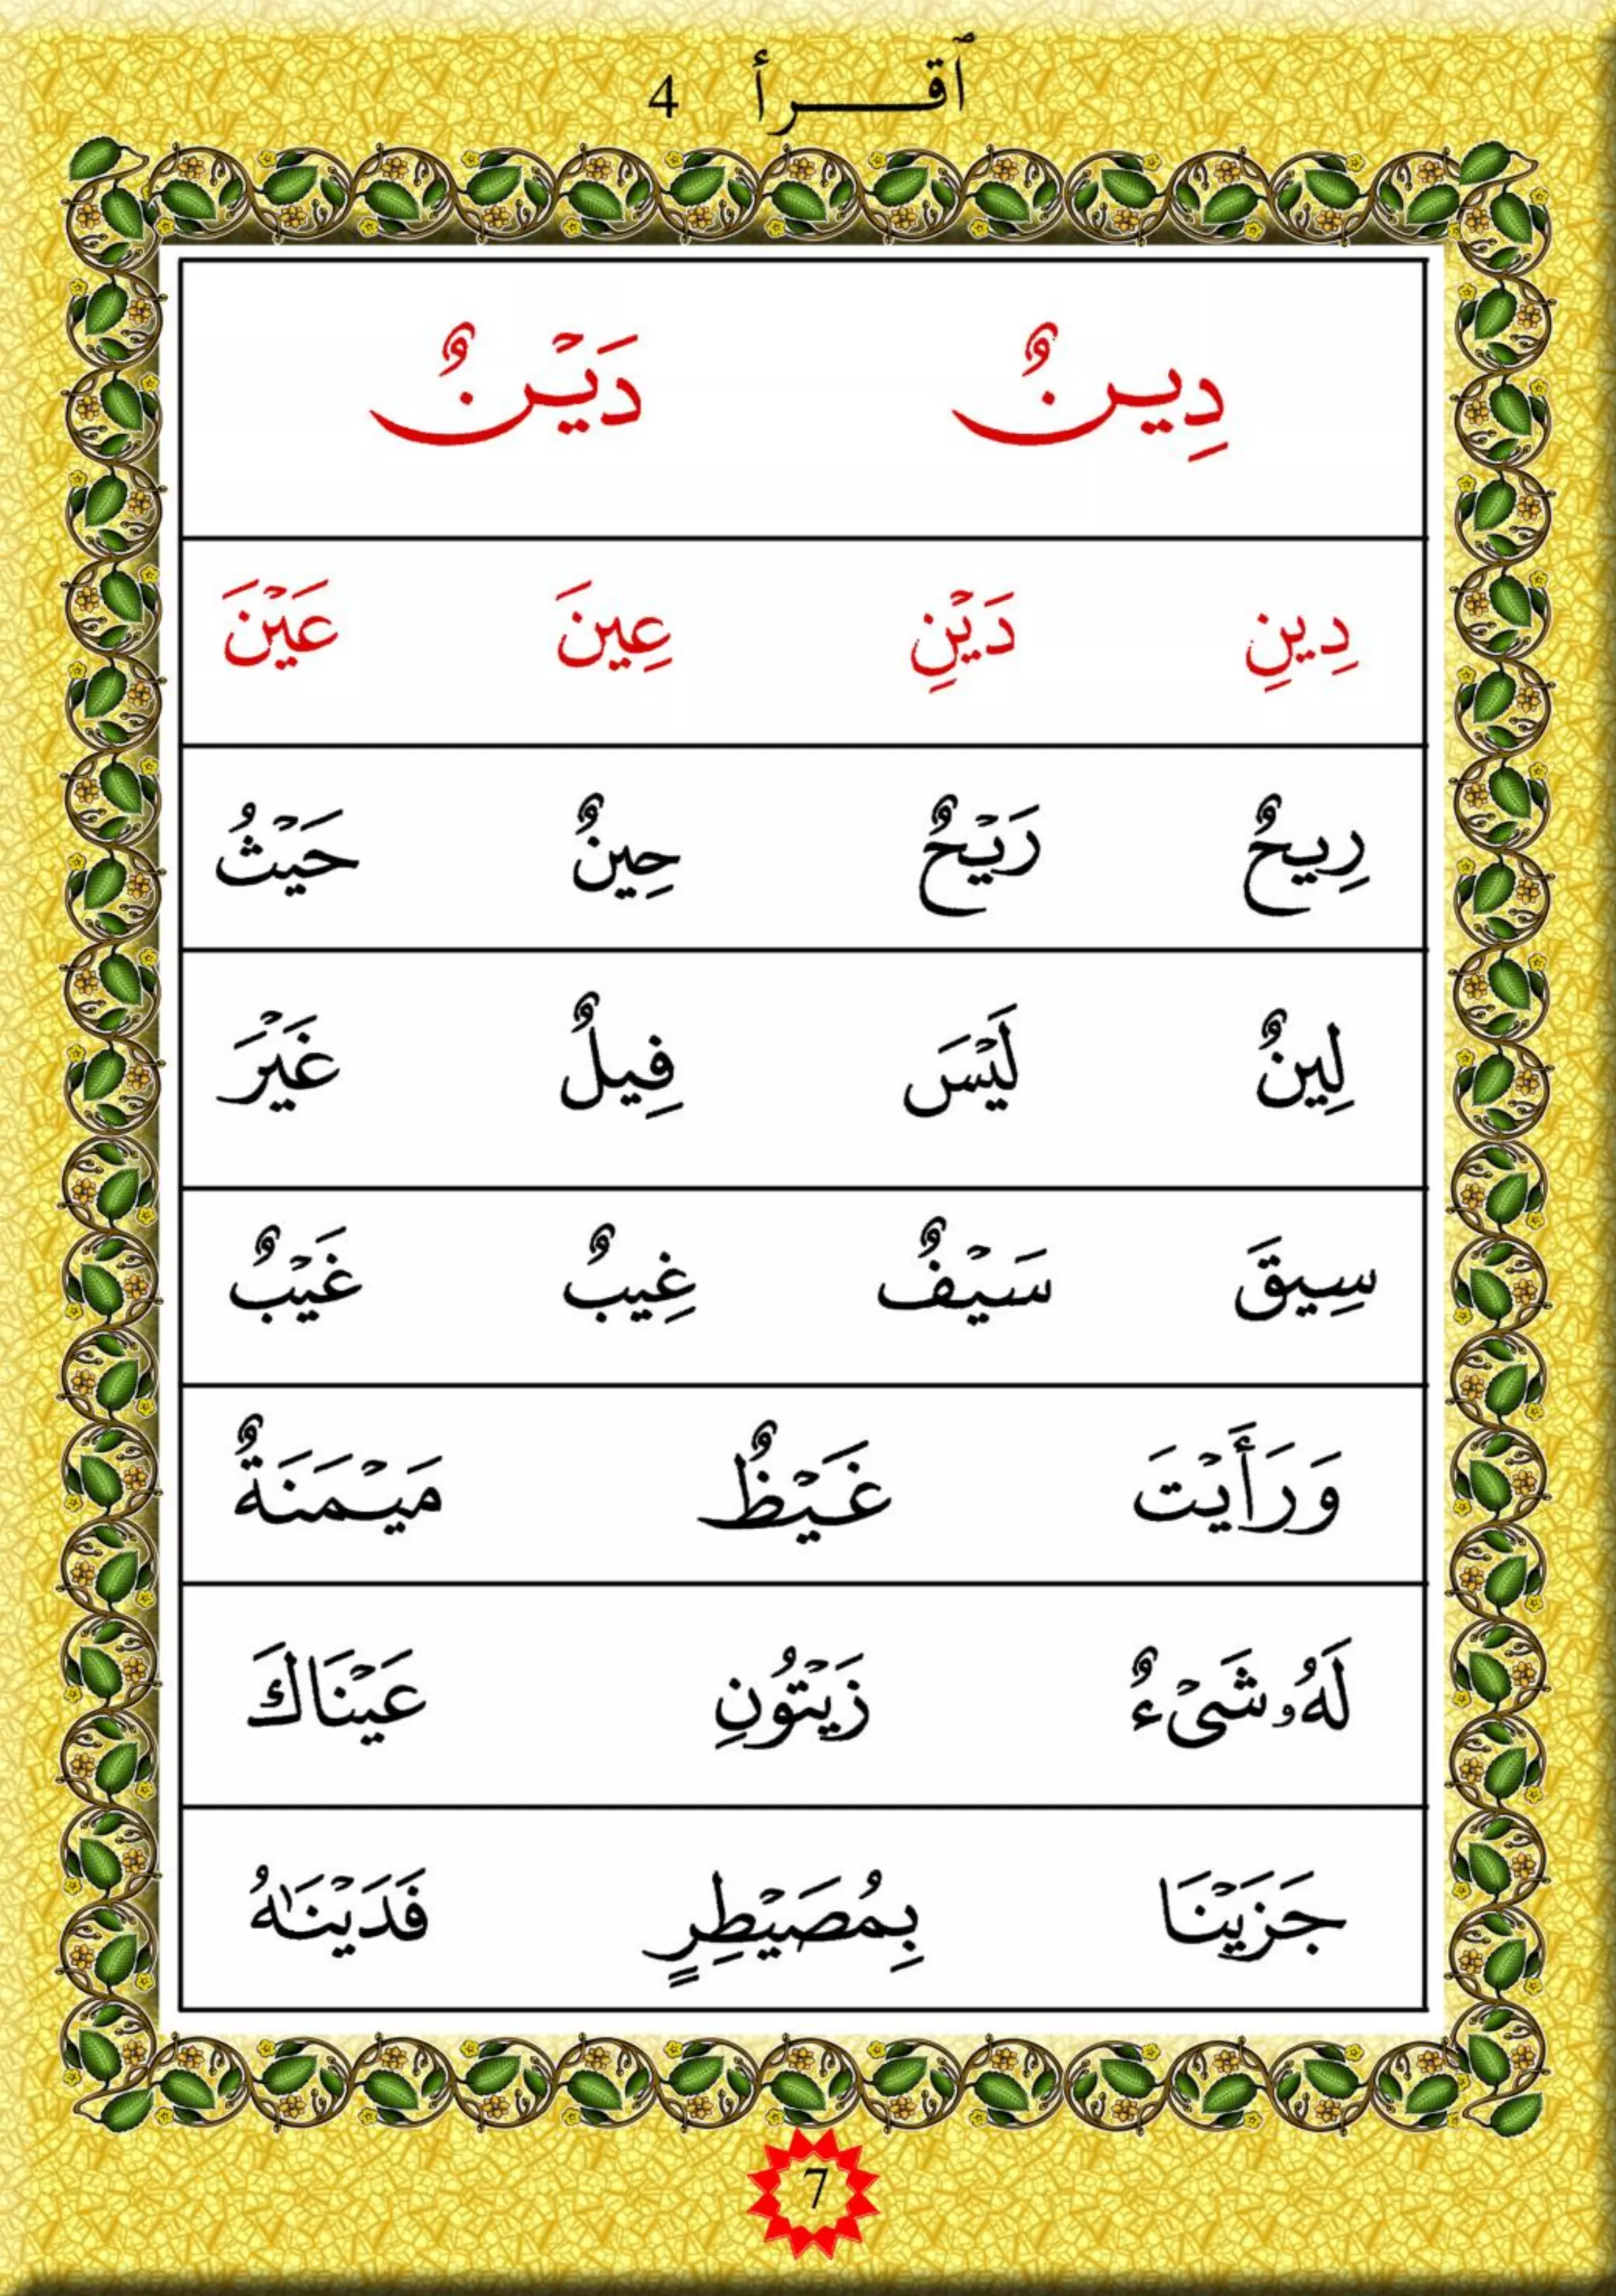 ٱقــــرأ 4
دِيـنٌ دَيْـنٌ
دِينِ دَيْنِ عِينَ عَيْنَ
رِيحٌ رَيْحٌ حِينٌ حَيْثُ
لِينٌ لَيْسَ فِيلٌ غَيْرَ
سِيقَ سَيْفٌ غِيبٌ غَيْبٌ
وَرَأَيْتَ غَيْظٌ مَيْمَنَةٌ
لَهُۥ شَىْءٌ زَيْتُونِ عَيْنَاكَ
جَزَيْنَا بِمُصَيْطِرٍ فَدَيْنَٰهُ
7